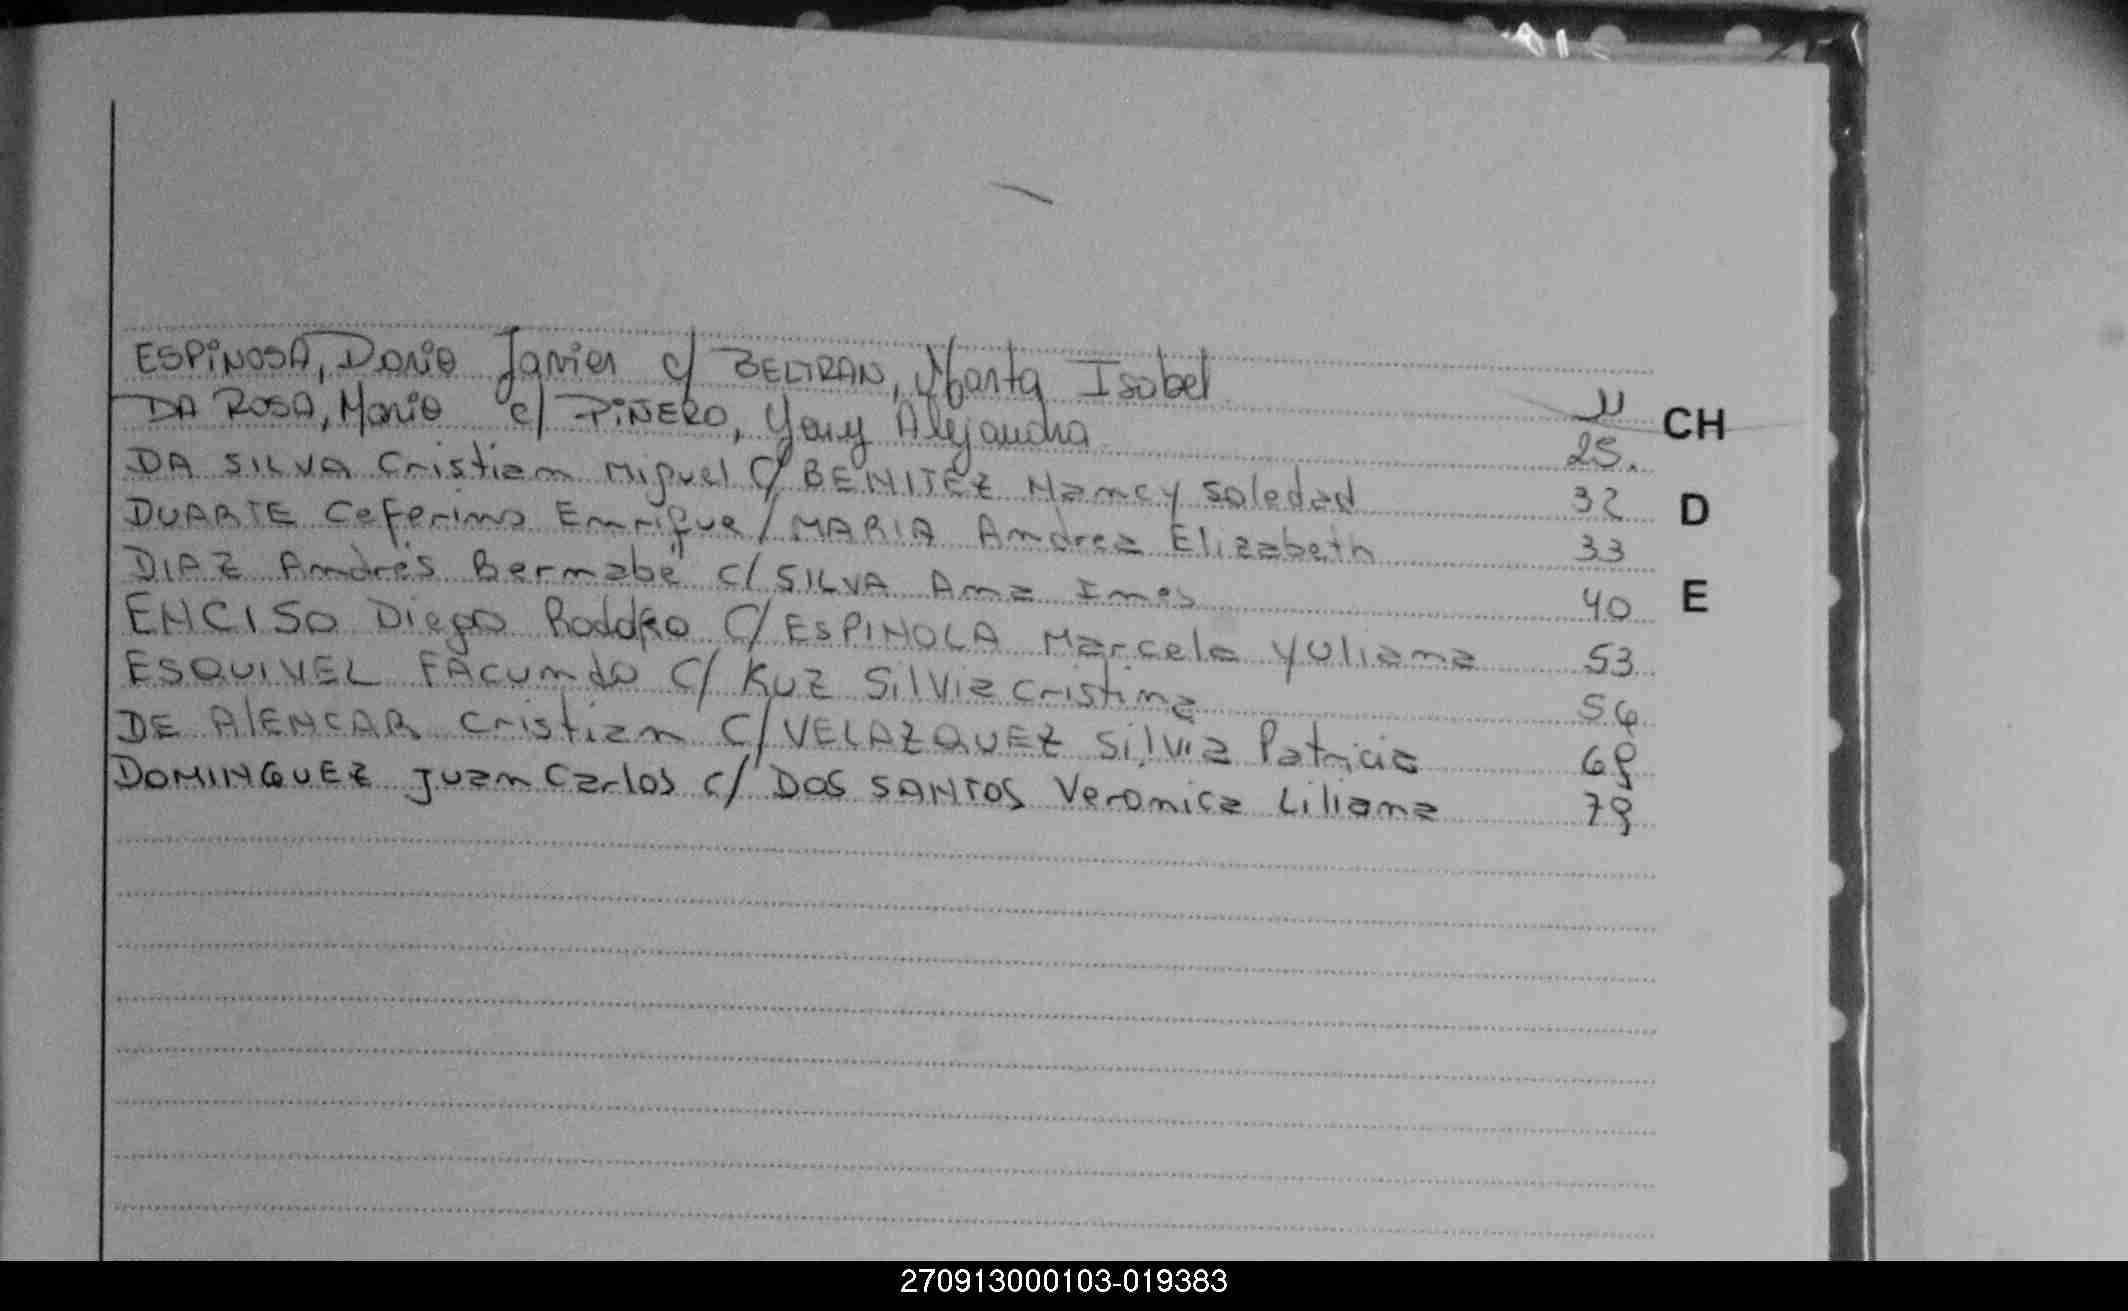 ESPINOSA, Dario Javier c/ BELTRAN, Marta Isabel 11
DA ROSA, Mario c/ PIÑERO, Yeny Alejandra 25. CH
DA SILVA Cristian Miguel C/ BENITEZ Nancy Soledad 32 D
DUARTE Ceferino Enrique / MARIA Andrea Elizabeth 33
DIAZ Andrés Bernabé c/ SILVA Ana Ines 40 E
ENCISO Diego C/ ESPINOLA Marcela Yuliana 53
ESQUIVEL FACundo C/ KUZ Silvia Cristina
DE AlENCAR Cristian C/ VELAZQUEZ Silvia Patricia
DOMINGUEZ Juan Carlos c/ DOS SANTOS Veronica Liliana
270913000103-019383